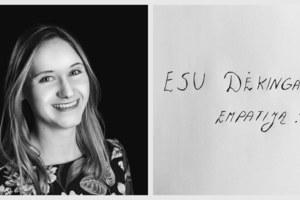 ESU DĖKINGA
EMPATIJĄ.